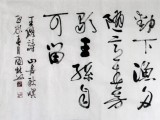 動下漁舟
隨意春芳
歇王孫自
可留
王維詩 山居秋暝